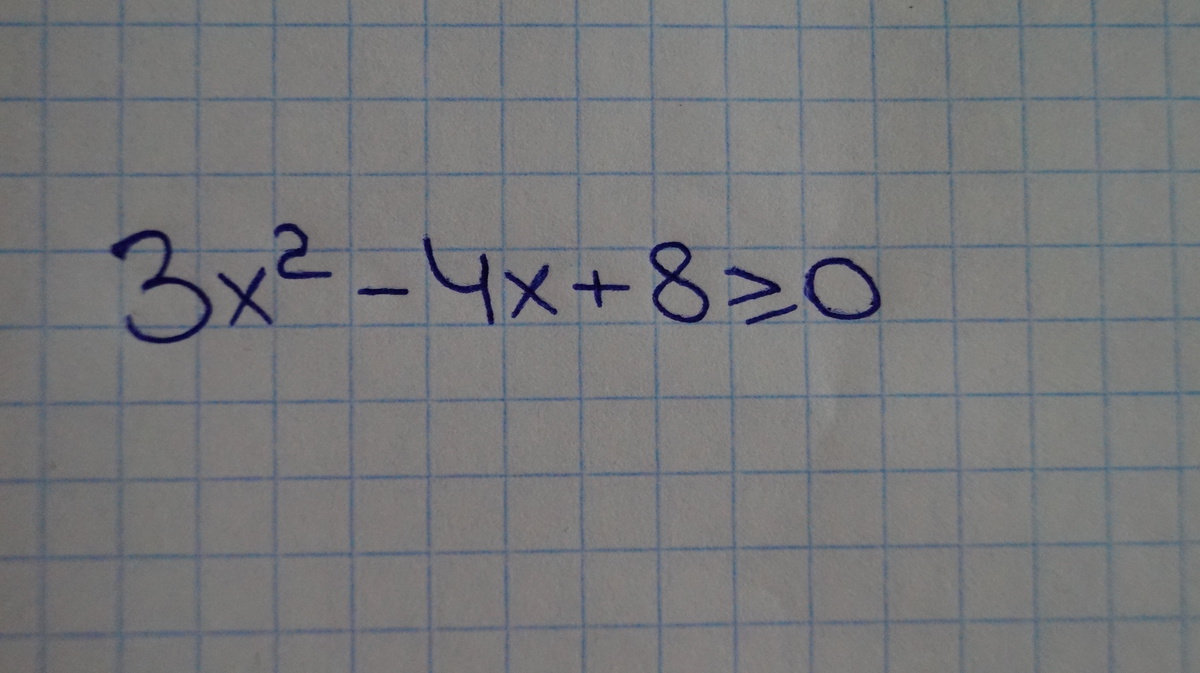 3x² - 4x + 8 ≥ 0